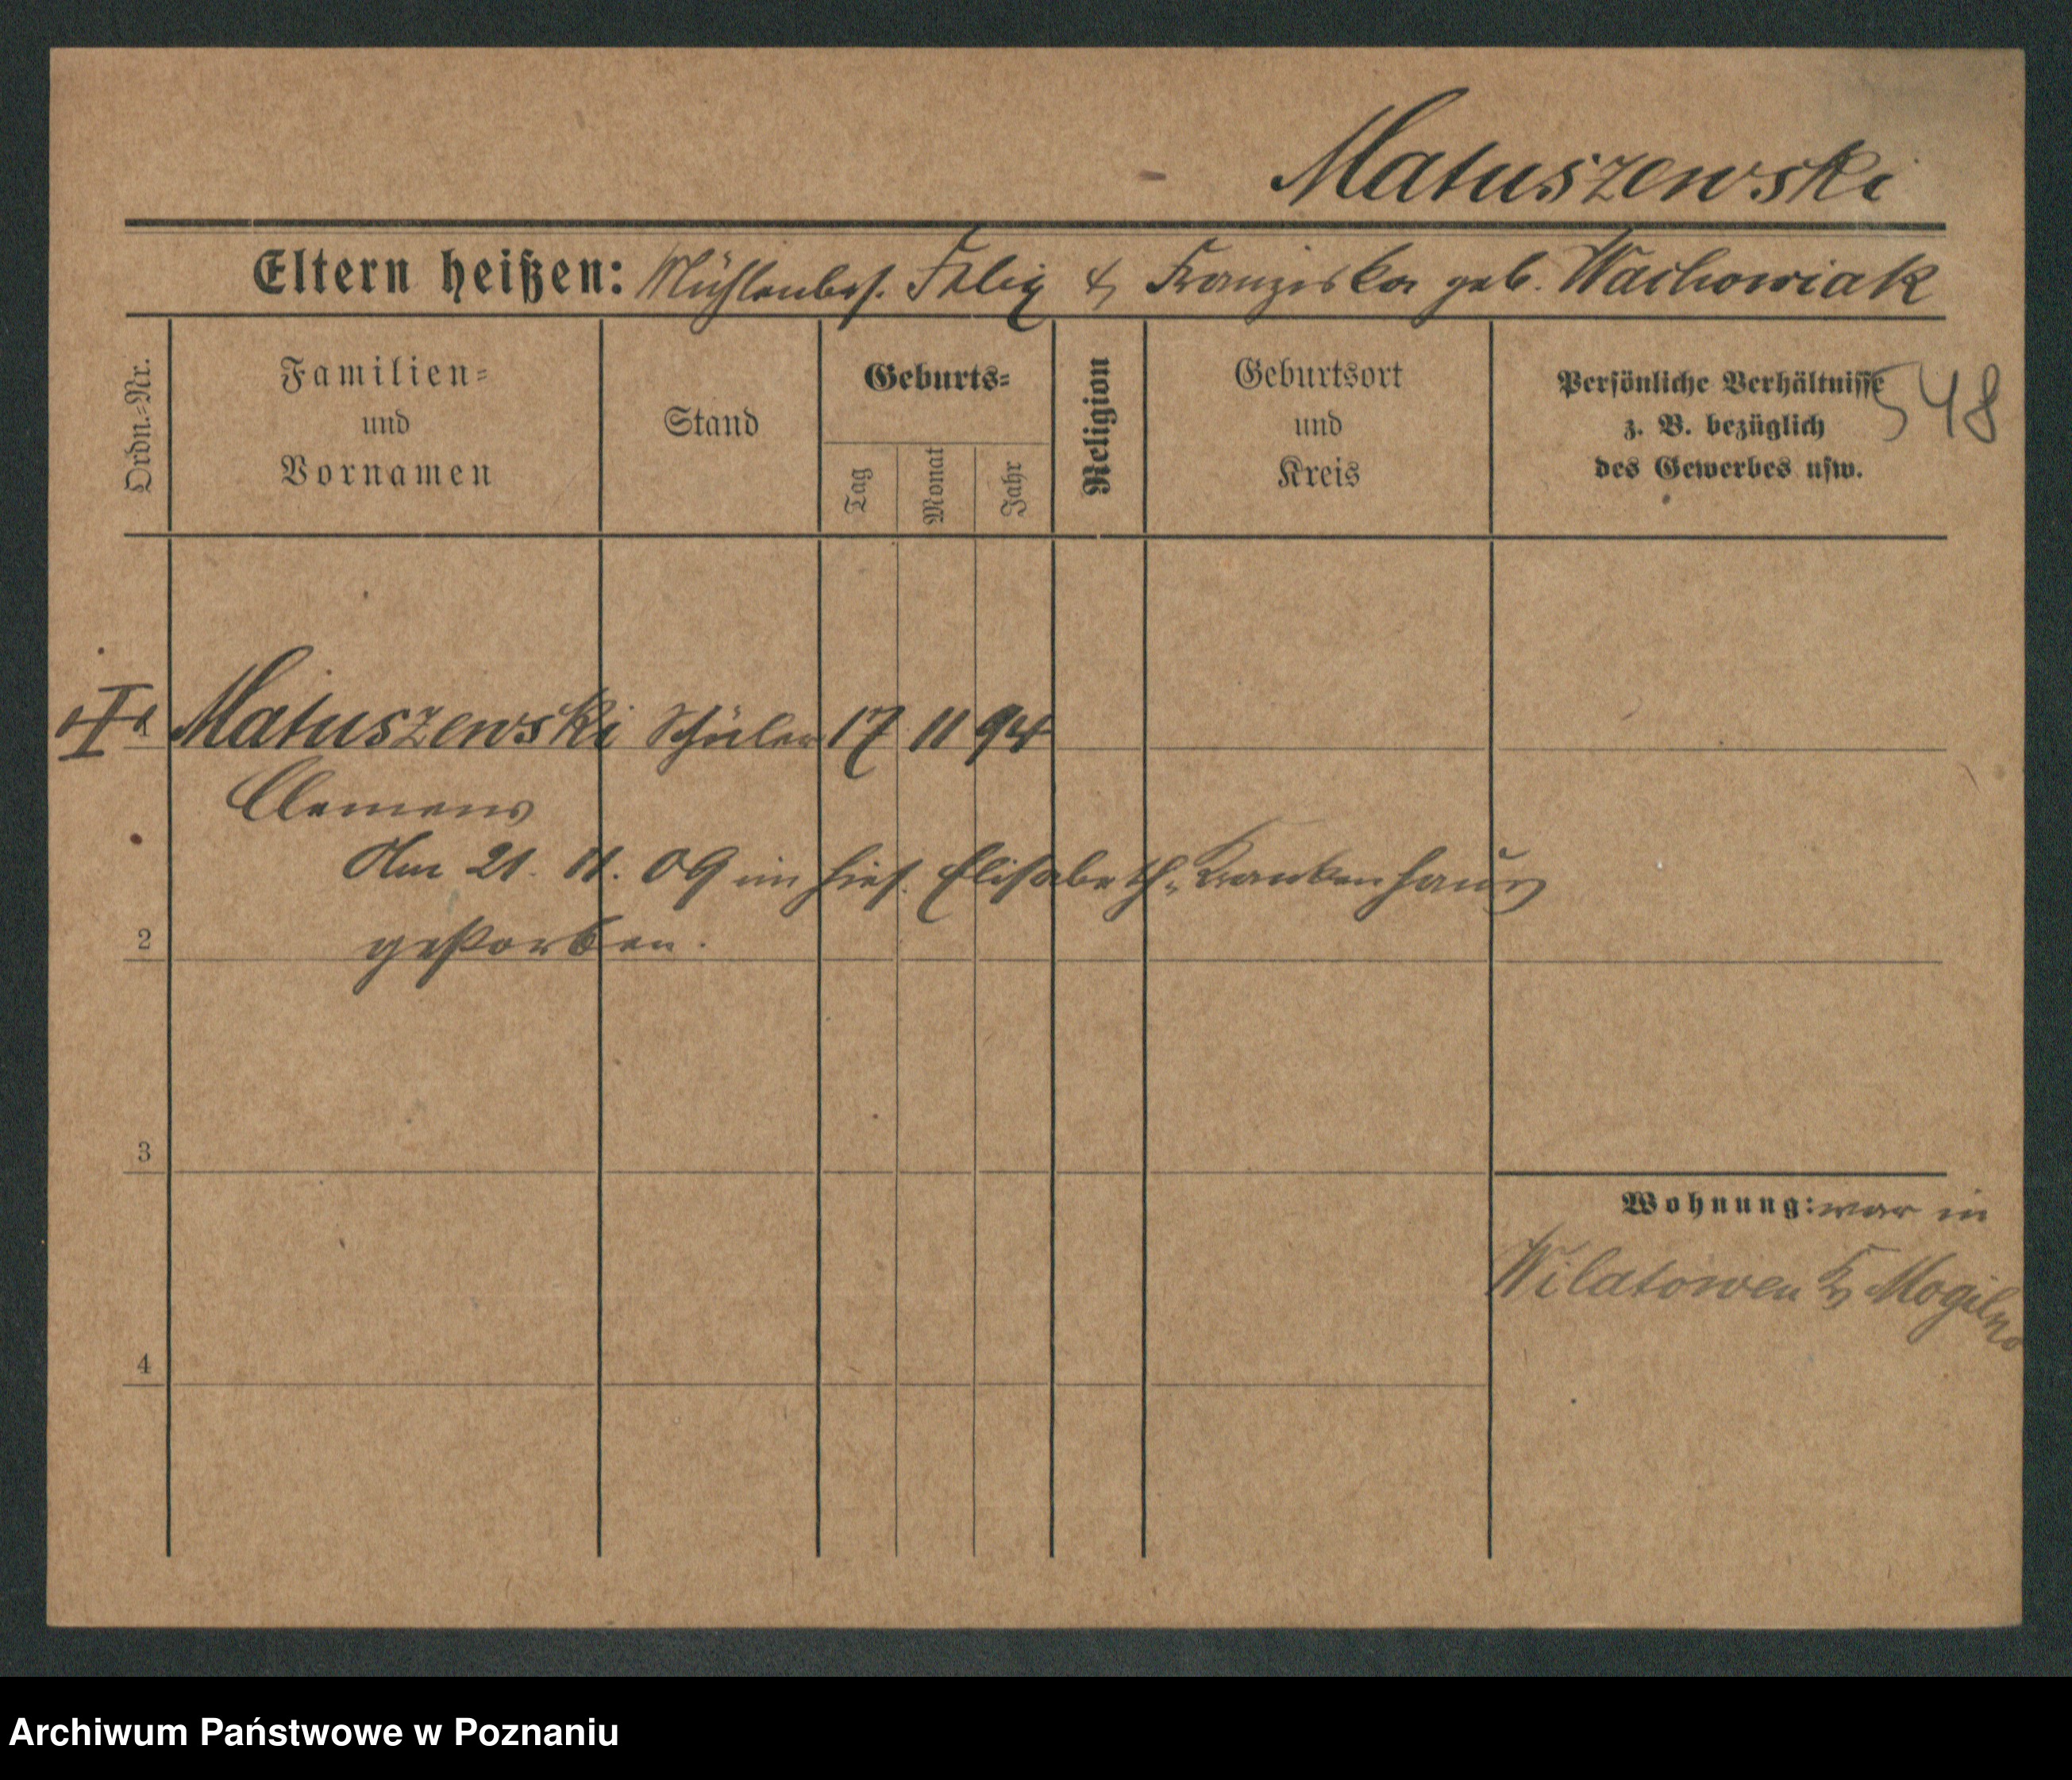 Matuszewski
Eltern heißen: Mühlenbes. Felix & Franziska geb. Wachowiak
Ordn.=Nr.
Familien=
und
Vornamen
Stand
Geburts=
Tag
Monat
Jahr
Religion
Geburtsort
und
Kreis
Persönliche Verhältnisse
z. B. bezüglich
des Gewerbes usw.
548
1 Matuszewski Schüler 17 11 94
Clemens
Am 21. 11. 09 im hies. Elisabeth-Krankenhaus
gestorben.
2
3
4
Wohnung: war in
Wilatowen Kr Mogilno
Archiwum Państwowe w Poznaniu